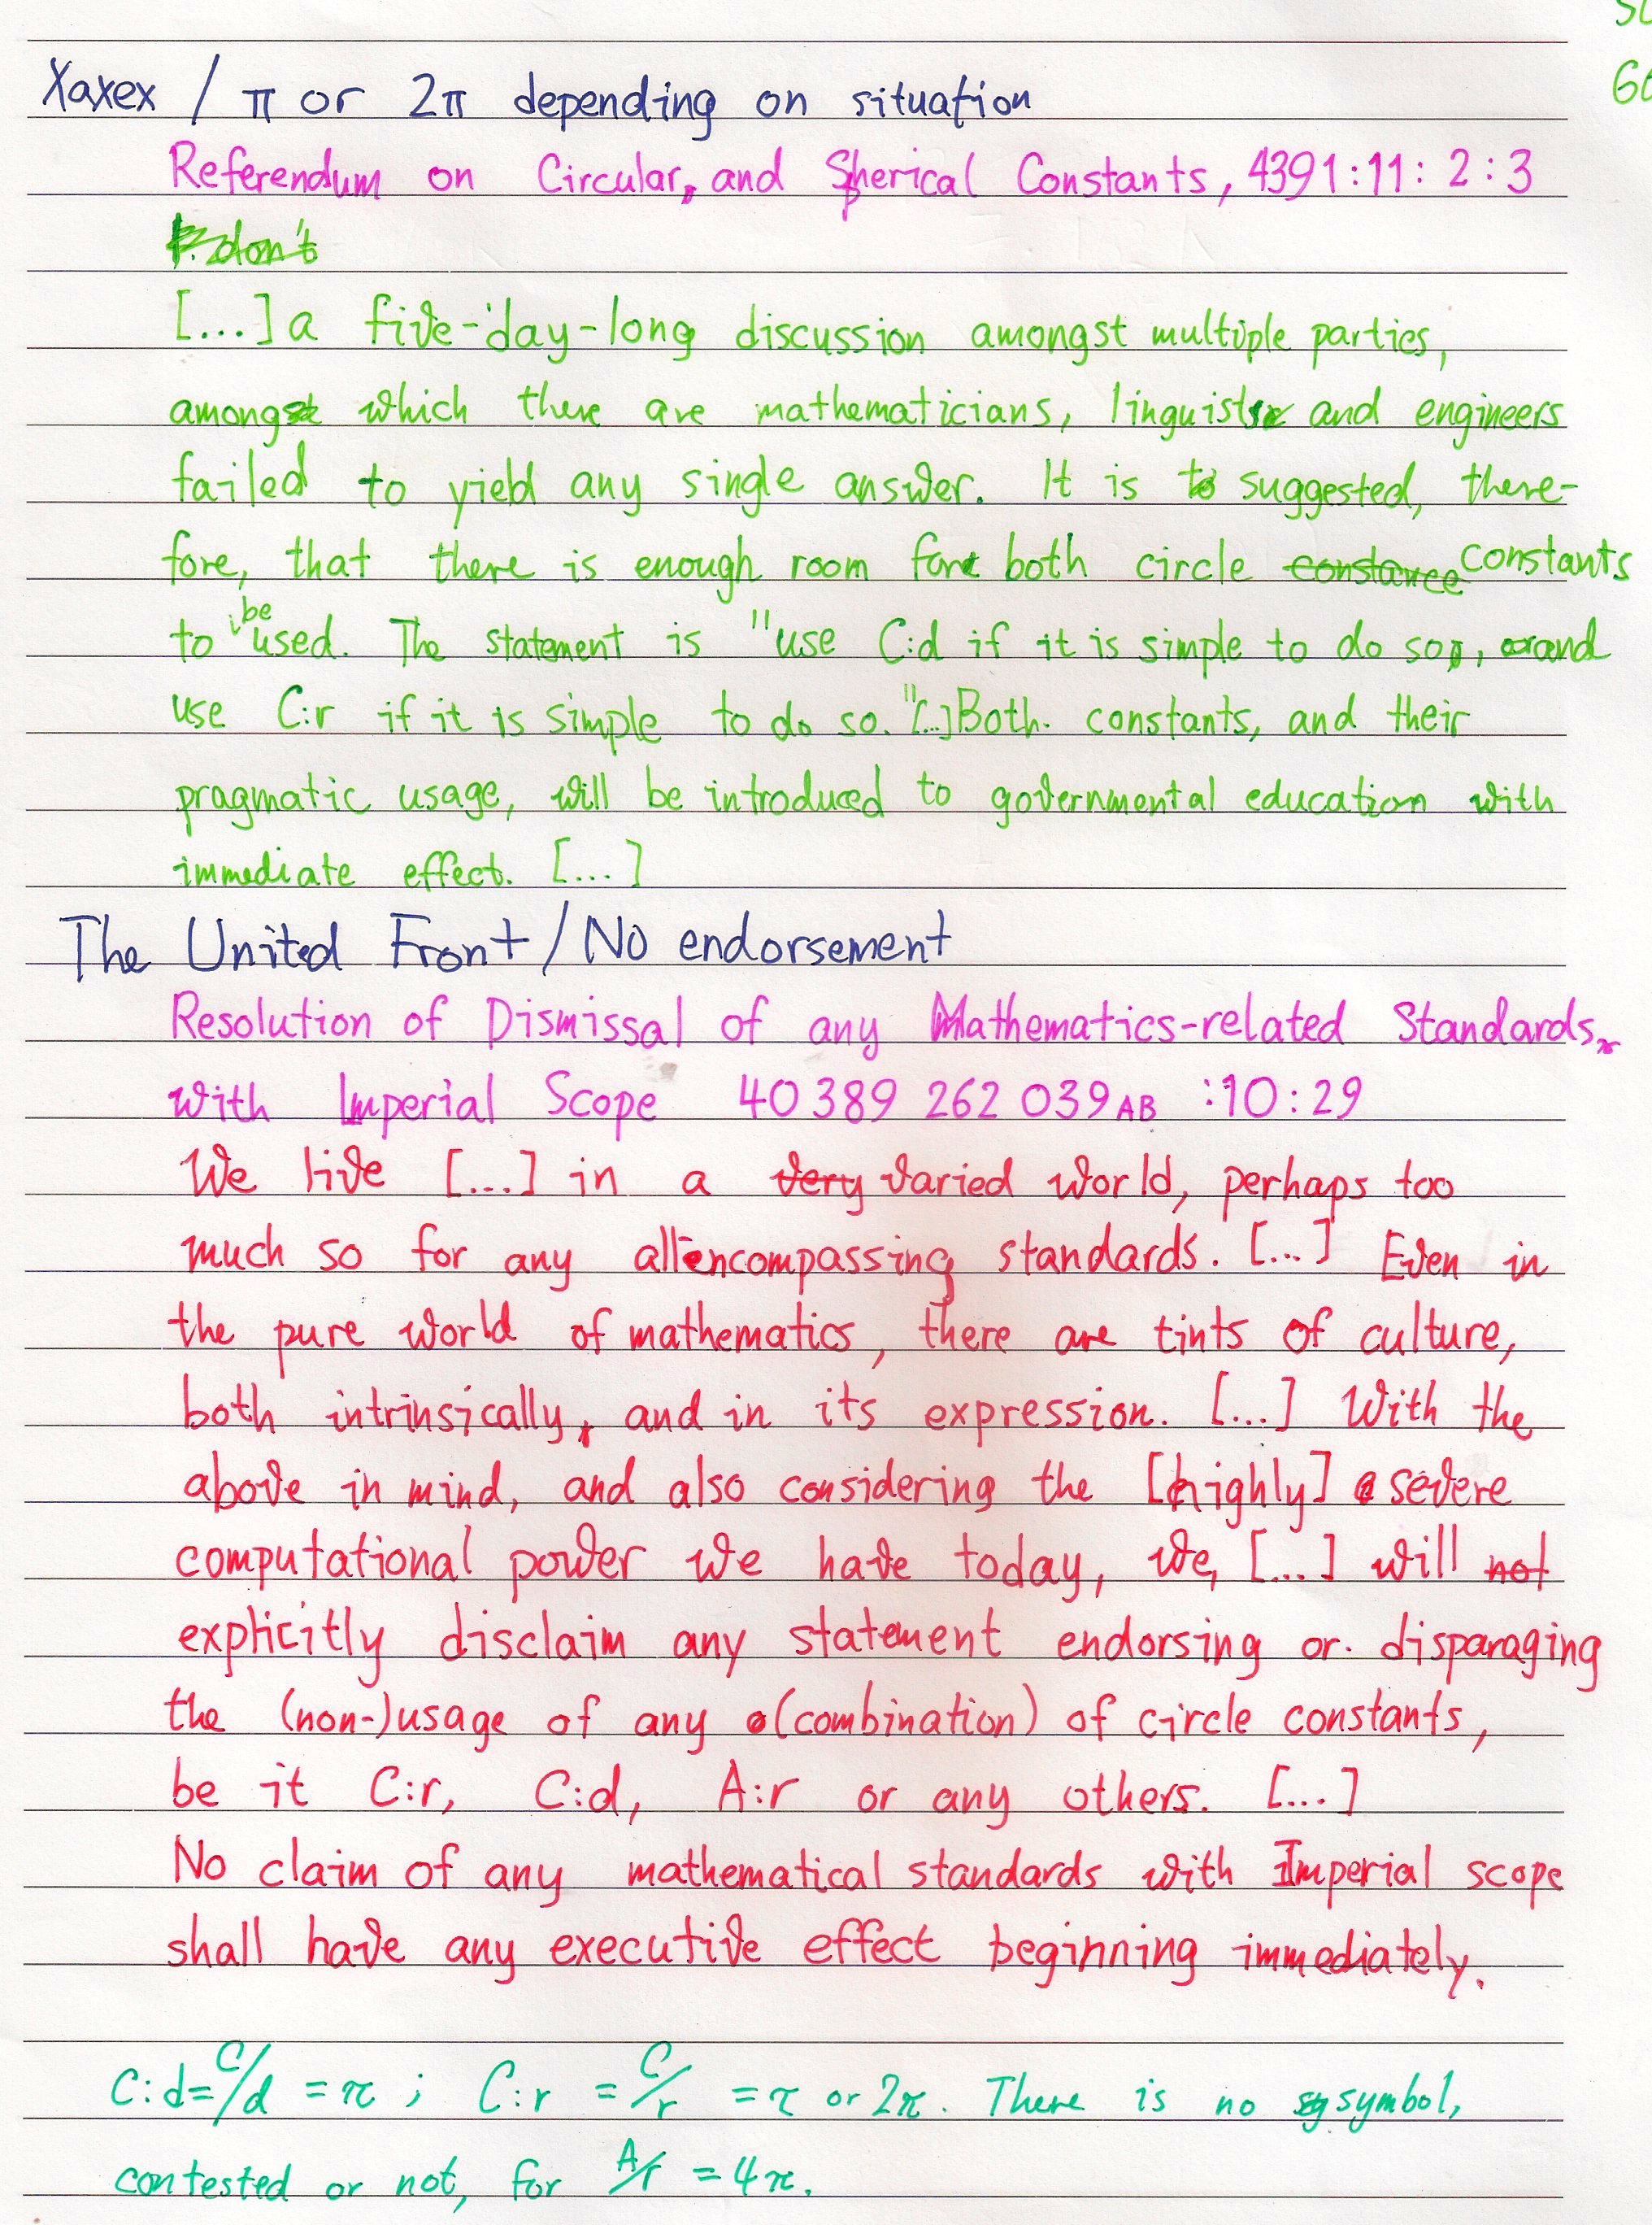 Xaxex / π or 2π depending on situation
Referendum on Circular, and Spherical Constants, 4391:11:2:3
don't
[...] a five-day-long discussion amongst multiple parties,
among which there are mathematicians, linguists and engineers
failed to yield any single answer. It is suggested, there-
fore, that there is enough room for both circle constance constants
to be used. The statement is "use C:d if it is simple to do so, and
use C:r if it is simple to do so." [...] Both constants, and their
pragmatic usage, will be introduced to governmental education with
immediate effect. [...]
The United Front / No endorsement
Resolution of Dismissal of any Mathematics-related Standards
with Imperial Scope 40 389 262 039 AB :10:29
We live [...] in a very varied world, perhaps too
much so for any allencompassing standards. [...] Even in
the pure world of mathematics, there are tints of culture,
both intrinsically, and in its expression. [...] With the
above in mind, and also considering the [highly] severe
computational power we have today, we, [...] will not
explicitly disclaim any statement endorsing or disparaging
the (non-)usage of any (combination) of circle constants,
be it C:r, C:d, A:r or any others. [...]
No claim of any mathematical standards with Imperial scope
shall have any executive effect beginning immediately.
C:d = C/d = π ; C:r = C/r = τ or 2π. There is no symbol,
contested or not, for A/r = 4π.